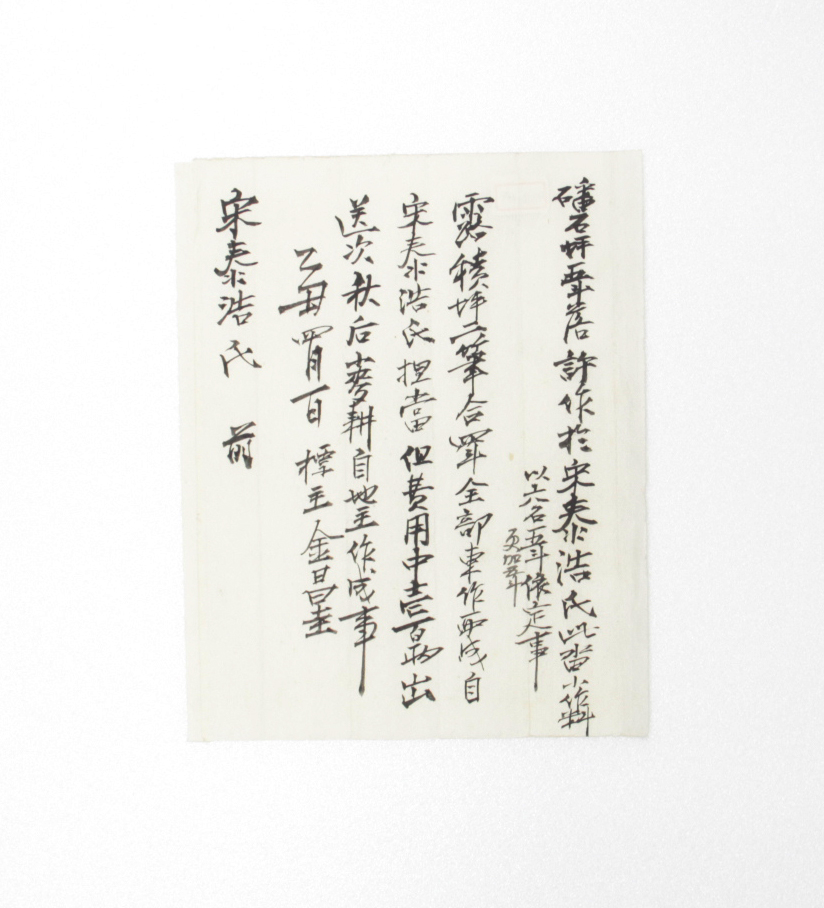 磻石坪五斗落許作於宋泰浩氏此畓小作料
以六石五斗依定人事
更加五斗
露積坪二筆合四斗全部東作而成自
宋泰浩氏担當但費用中壹百兩出
送次秋后麥耕自地主作成事
乙丑四月一日 標主 金昌圭
宋泰浩氏 前